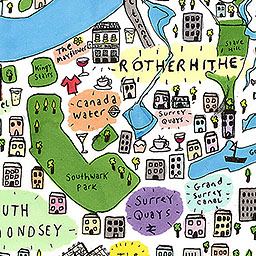 The
Mayflower
ROTHERHITHE
King's
Stairs
Stave
Hill
Canada
Water
Surrey
Quays
Southwark
Park
Grand
Surrey
Canal
Surrey
Quays
UTH
ONDSEY